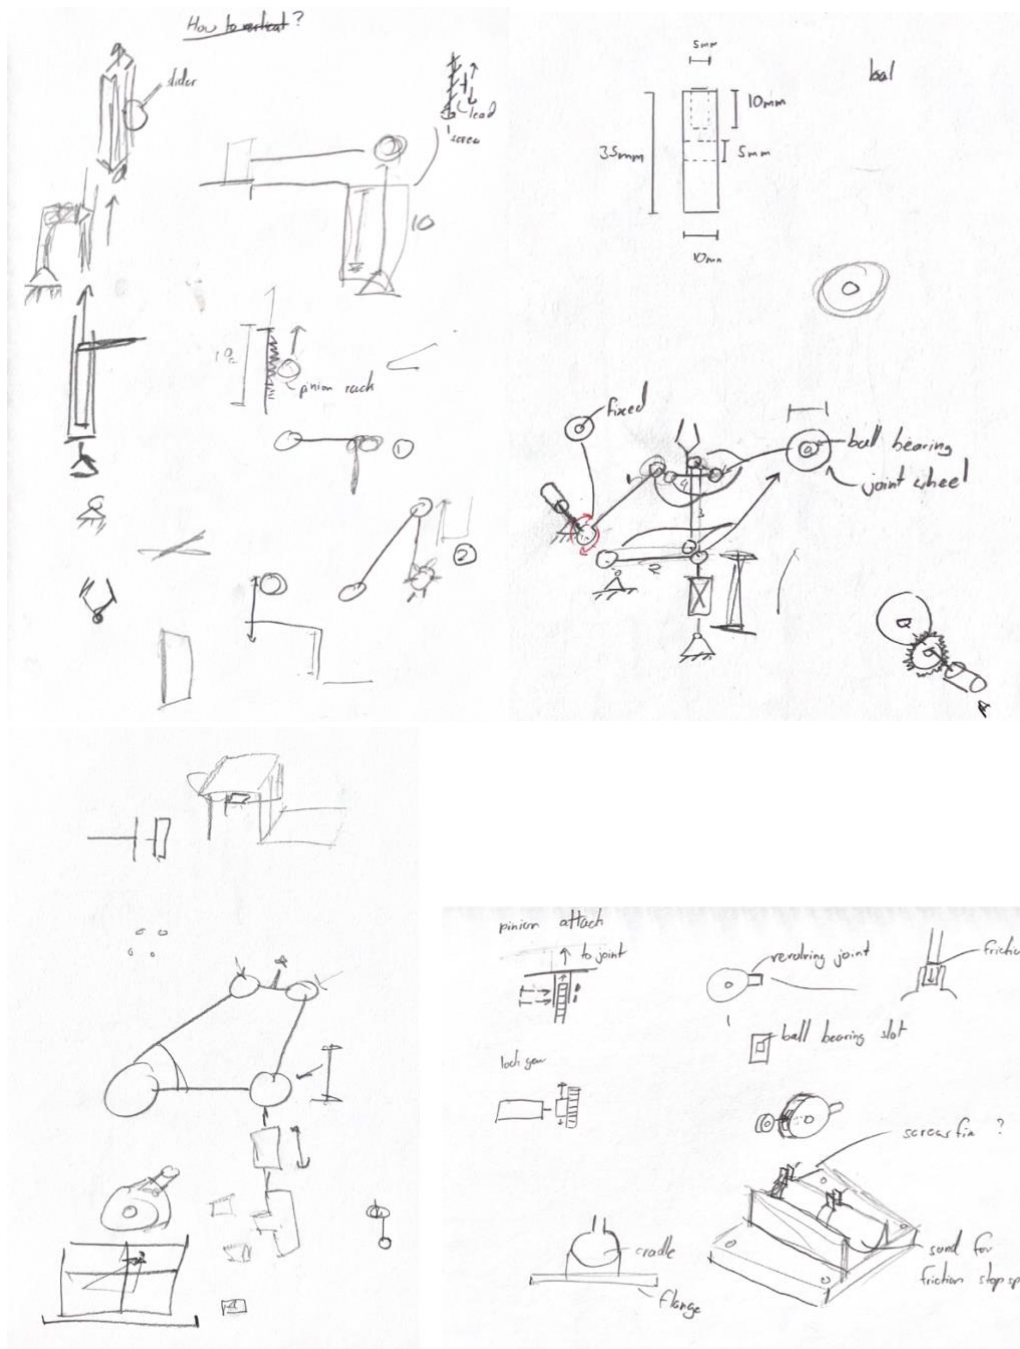 How to vertical?
slider
lead
screw
10
pinion rack
1
2
5mm
bal
10mm
35mm
5mm
10mm
fixed
ball bearing
joint wheel
1
4
3
2
pinion attach
to joint
revolving joint
ball bearing slot
lock gear
screws fix ?
cradle
flange
sand for
friction stop sp